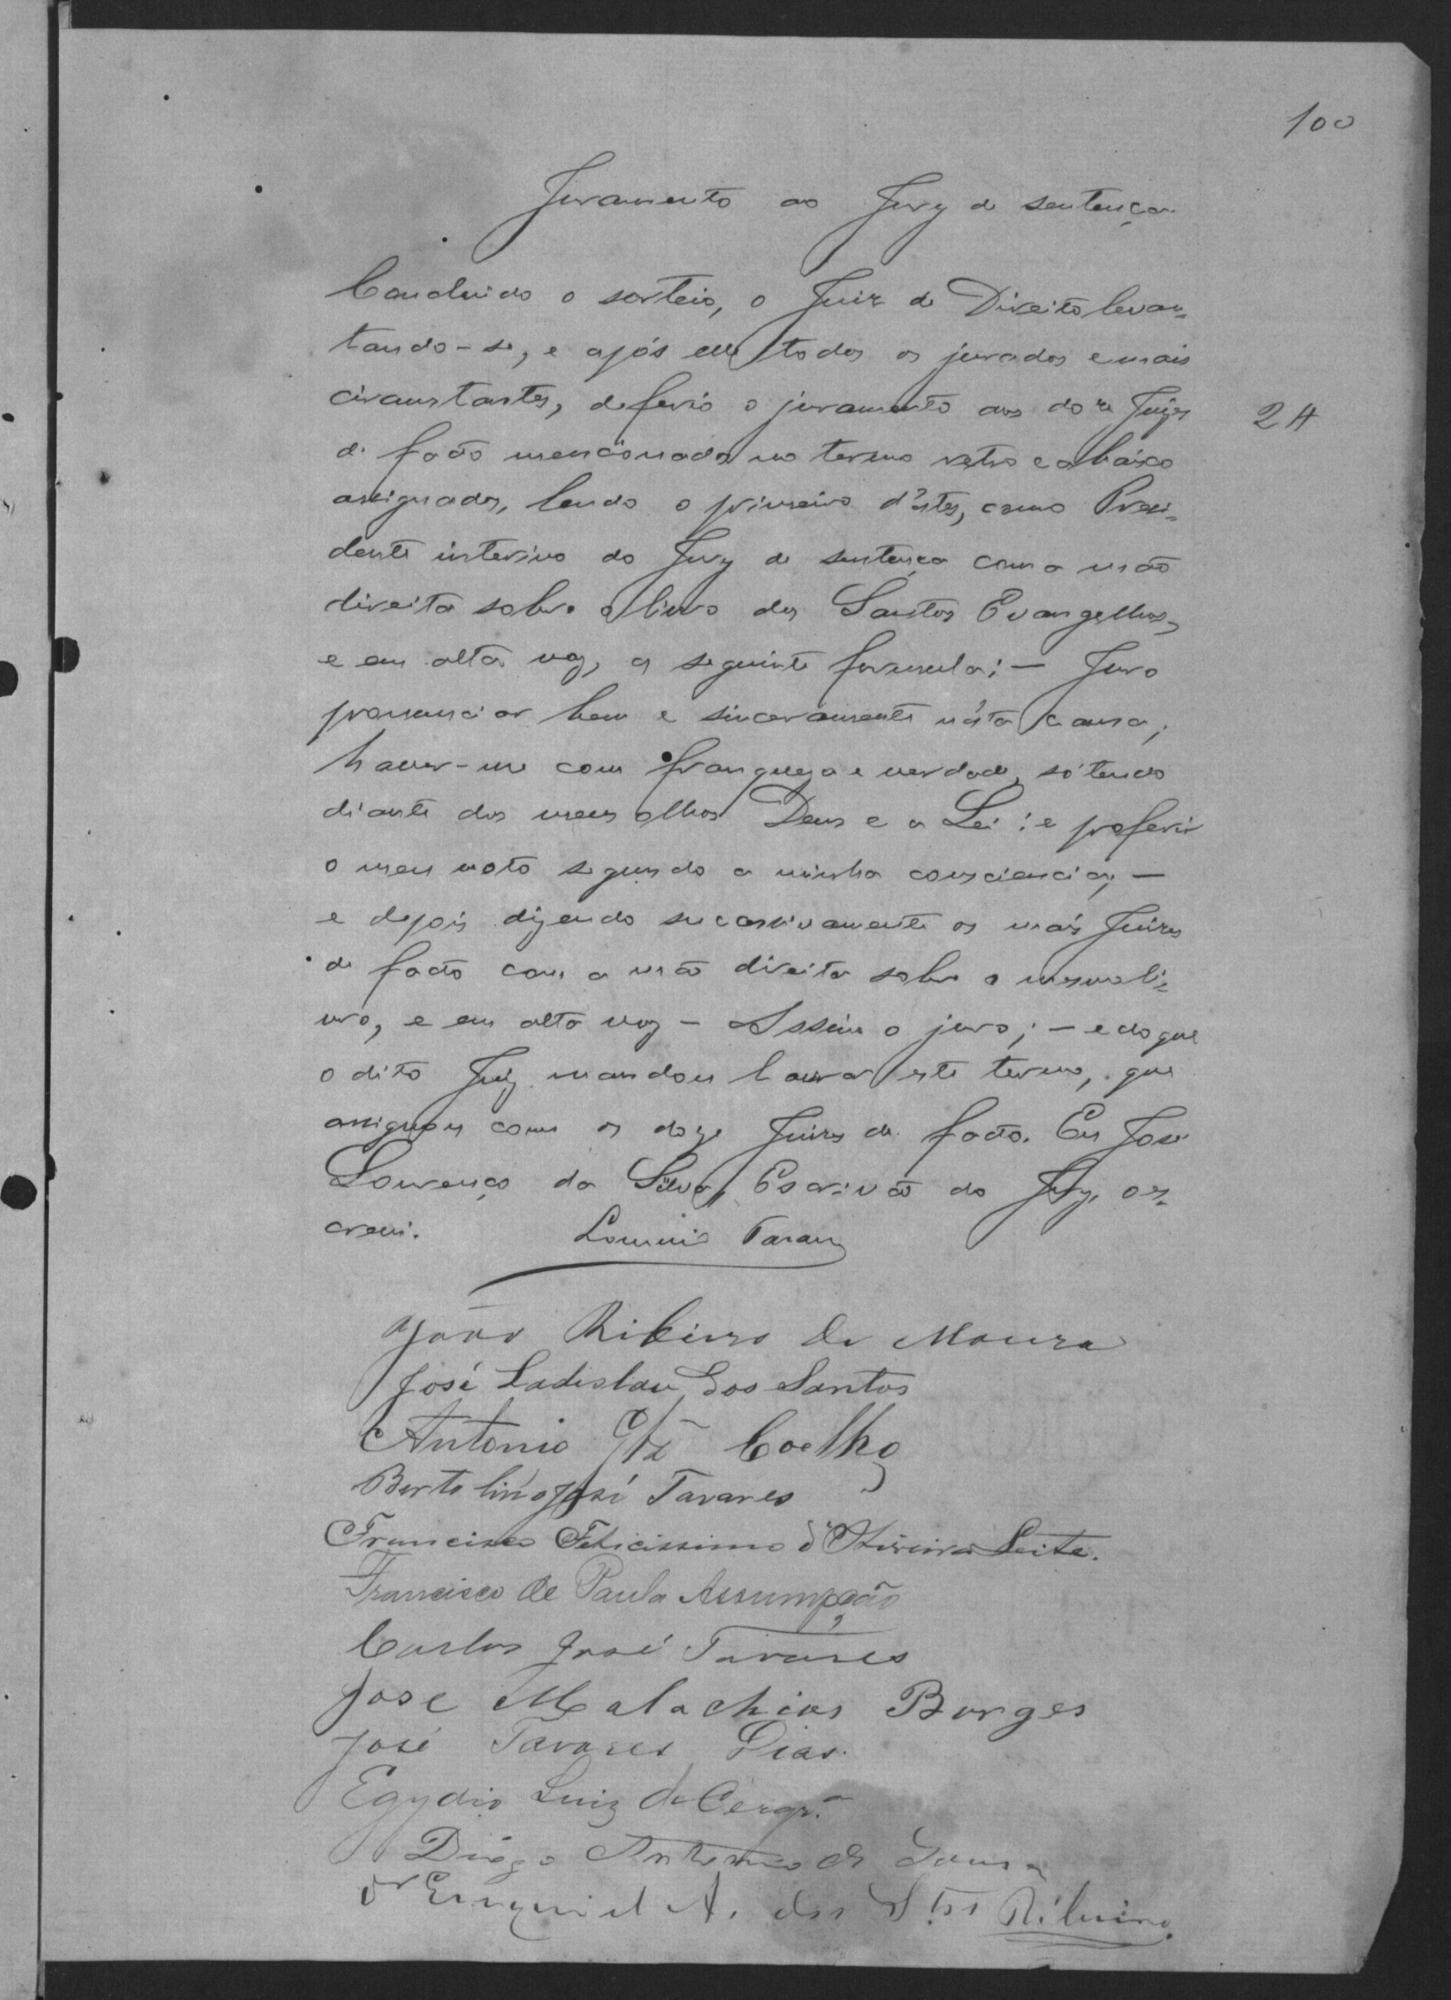 100
Juramento ao Jury de sentença
Concluido o sorteio, o Juiz de Direito levan-
tando-se, e após elle todos os jurados e mais
circunstantes, deferio o juramento aos doze Juizes
de facto mencionados no termo retro e abaixo
assignados, lendo o primeiro d'estes, como Presi-
dente interino do Jury de sentença com a mão
direita sobre o livro dos Santos Evangelhos,
e em alta voz, a seguinte formula: — Juro
pronunciar bem e sinceramente nésta causa;
haver-me com franqueza e verdade, só tendo
diante dos meus olhos Deus e a Lei; e proferir
o meu voto segundo a minha consciencia; —
e depois dizendo sucessivamente os mais Juizes
de facto com a mão direita sobre o mesmo li-
vro, e em alta voz — Assim o juro; — e do que
o dito Juiz mandou lavrar este termo, que
assignou com os doze Juizes de facto. Eu José
Lourenço da Silva, Escrivão do Jury, es-
crevi.
João Ribeiro de Moura
José Ladislau dos Santos
Antonio Coelho
Bertolino José Tavares
Francisco Felicissimo d'Oliveira Leite.
Francisco de Paula Assumpção
Carlos José Tavares
Jose Malachias Borges
José Tavares Dias
Egydio Luiz de Cerqr.ª
Diogo Antonio de Sousa
Dr Ezequiel A. dos Stos Ribeiro.